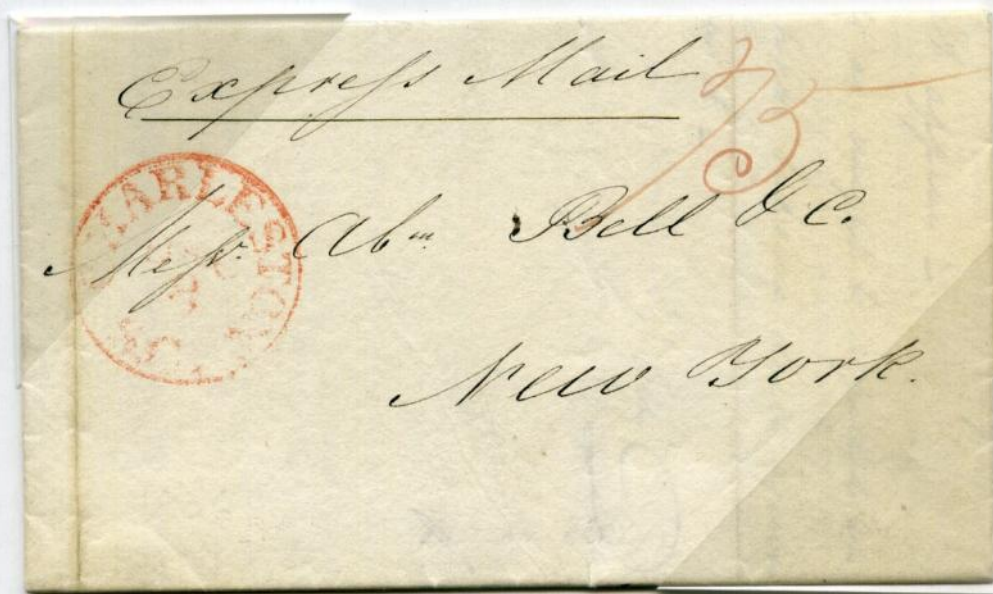 Express Mail
75
CHARLESTON
S.C.
Messrs. Abm. Bell & C.
New York.